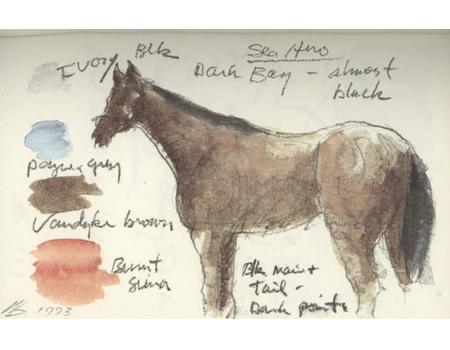 Ivory Blk
Sea Hero
Dark Bay - almost
black
payne grey
Vandyke brown
Burnt
Siena
Blk main +
Tail -
Dark points
1993